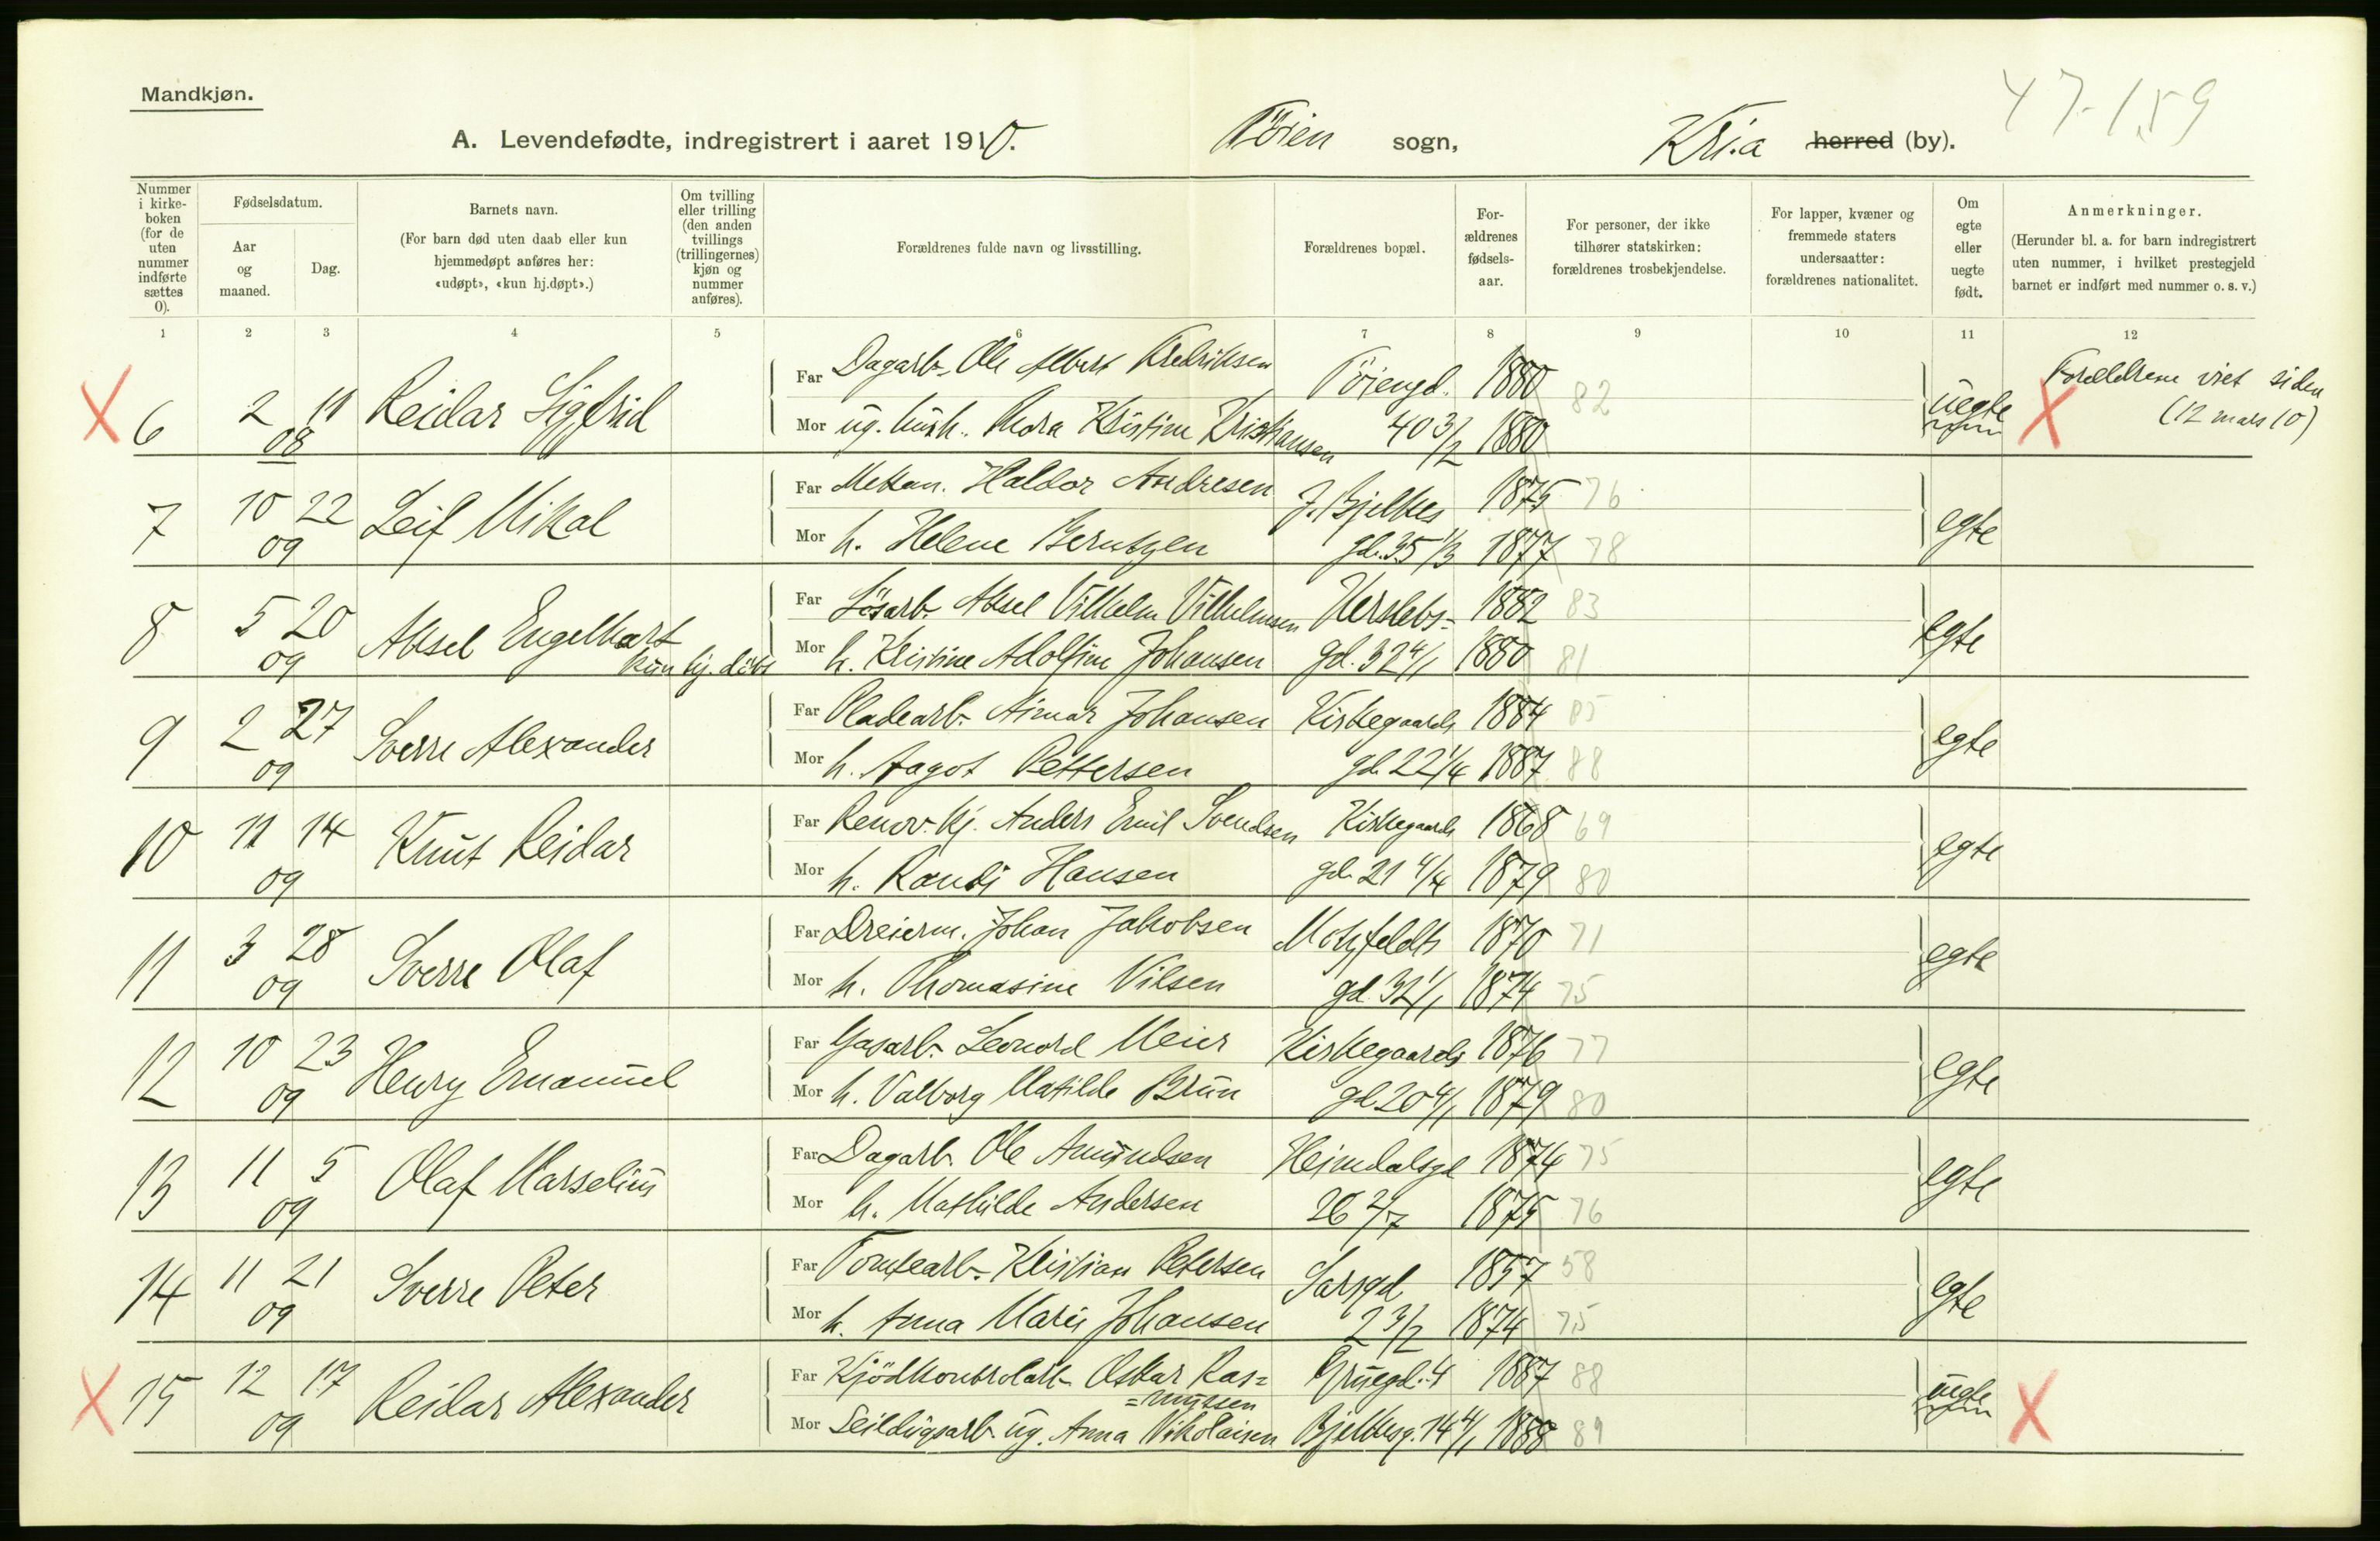 Mandkjøn.
47-159
A. Levendefødte, indregistrert i aaret 1910. Töien sogn, Kri.a herred (by).
Nummer i kirke-boken (for de uten nummer indførte sættes 0).
Fødselsdatum.
Aar og maaned.
Dag.
Barnets navn.
(For barn død uten daab eller kun hjemmedøpt anføres her: «udøpt», «kun hj.døpt».)
Om tvilling eller trilling (den anden tvillings (trillingernes) kjøn og nummer anføres).
Forældrenes fulde navn og livsstilling.
Forældrenes bopæl.
For-ældrenes fødsels-aar.
For personer, der ikke tilhører statskirken: forældrenes trosbekjendelse.
For lapper, kvæner og fremmede staters undersaatter: forældrenes nationalitet.
Om egte eller uegte født.
Anmerkninger.
(Herunder bl. a. for barn indregistrert uten nummer, i hvilket prestegjeld barnet er indført med nummer o. s. v.)
1 2 3 4 5 6 7 8 9 10 11 12
X 6 2 08 11 Reidar Sigfrid
Far Dagarb. Ole Albert Fredriksen Töiengd. 1880 82
Mor ug. hush. Thora Kristine Kristiansen 40 3/2 1880
uegte X Forældrene viet siden
(12 mars 10)
7 10 09 22 Leif Mikal
Far Mekan. Haldor Andresen J. Bjelkes 1875 76
Mor h. Helene Berntzen gd. 35 1/3 1877 78
egte
8 5 09 20 Aksel Engelhart
kun hj. döbt
Far Lösarb. Aksel Vilhelm Vilhelmsen Herslebs- 1882 83
Mor h. Kristine Adolfine Johansen gd. 32 4/1 1880 81
egte
9 2 09 27 Sverre Alexander
Far Pladearb. Aimar Johansen Kirkegaards 1884 85
Mor h. Aagot Pettersen gd. 22 1/4 1887 88
egte
10 11 09 14 Knut Reidar
Far Renov. kj. Anders Emil Svendsen Kirkegaards 1868 69
Mor h. Randi Hansen gd. 21 4/4 1879 80
egte
11 3 09 28 Sverre Olaf
Far Dreierm. Johan Jakobsen Motzfeldts 1870 71
Mor h. Thomasine Nilsen gd. 32 1/1 1874 75
egte
12 10 09 23 Henry Emanuel
Far Gasarb. Leonard Meier Kirkegaards 1876 77
Mor h. Valborg Matilde Brun gd 20 4/1 1879 80
egte
13 11 09 5 Olaf Marselius
Far Dagarb. Ole Amundsen Heimdalsgd 1874 75
Mor h. Mathilde Andersen 26 2/7 1875 76
egte
14 11 09 21 Sverre Peter
Far Tomtearb. Kristian Petersen Sarsgd 1857 58
Mor h. Anna Marie Johansen 2 3/2 1874 75
egte
X 15 12 09 17 Reidar Alexander
Far Kjödkontrolarb. Oskar Ras= Gruegd. 4 1887 88
=mussen
Mor Seildugsarb. ug. Anna Nikolaisen Bjelkesg. 14 4/1 1888 89
uegte X